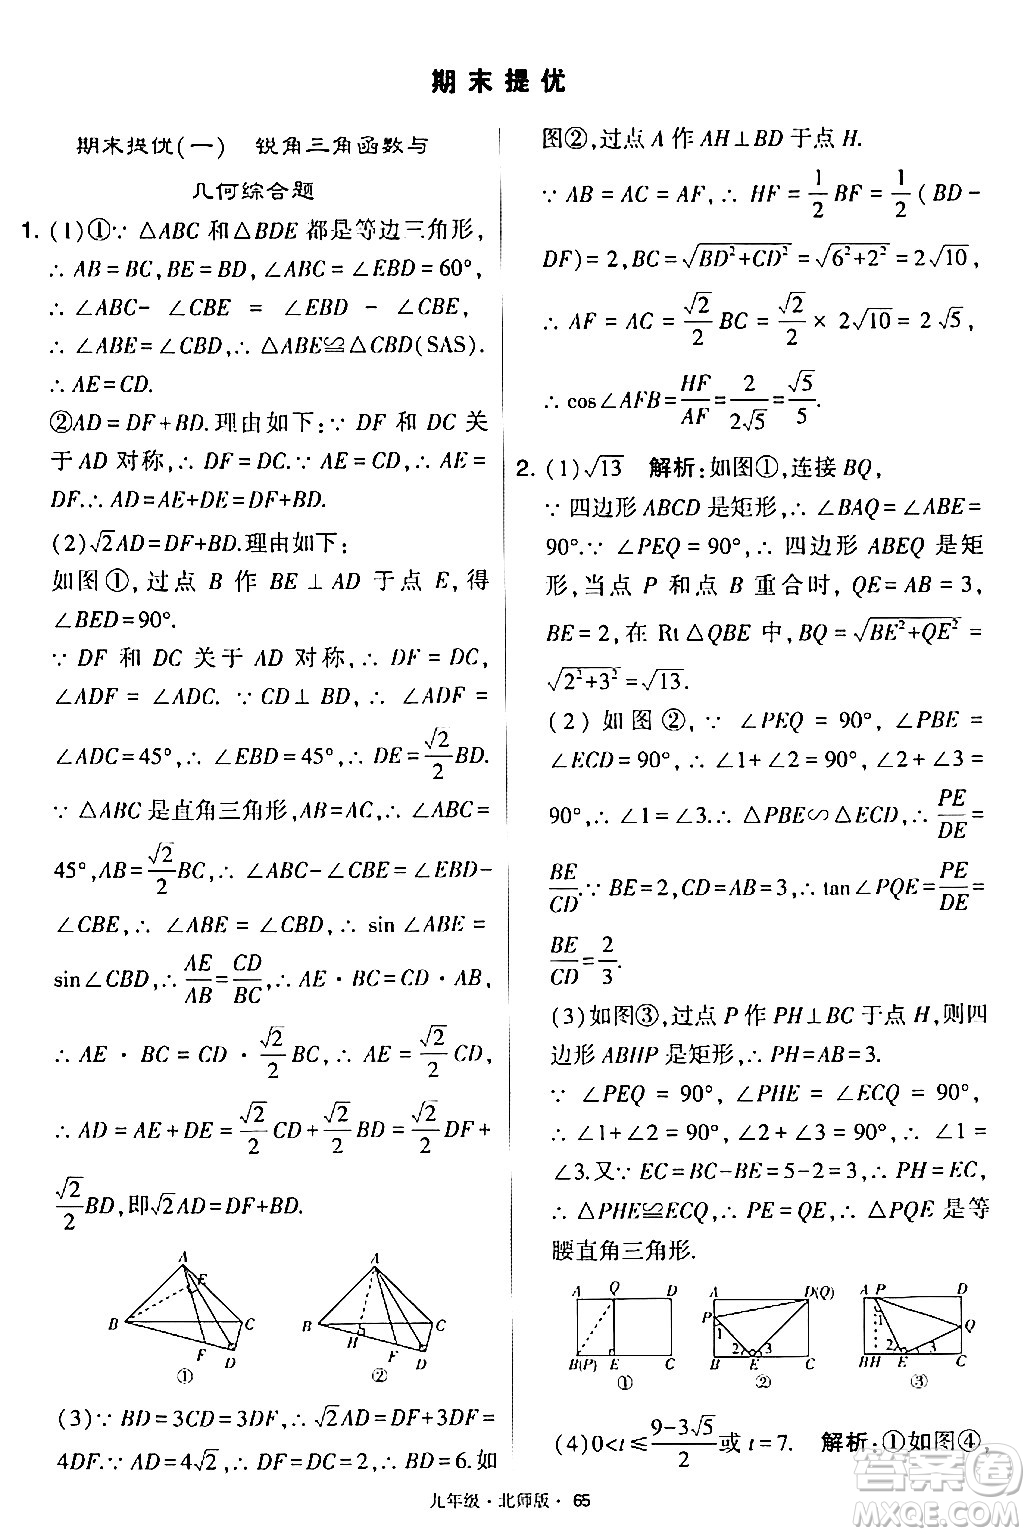 期末提优
期末提优(一) 锐角三角函数与
几何综合题
1. (1)①∵ △ABC 和△BDE 都是等边三角形,
∴ AB=BC,BE=BD,∠ABC=∠EBD=60°,
∴ ∠ABC- ∠CBE = ∠EBD - ∠CBE,
∴ ∠ABE=∠CBD,∴ △ABE≌△CBD(SAS).
∴ AE=CD.
②AD=DF+BD.理由如下:∵ DF 和 DC 关
于 AD 对称,∴ DF=DC.∵ AE=CD,∴ AE=
DF.∴ AD=AE+DE=DF+BD.
(2)√2AD=DF+BD.理由如下:
如图①,过点 B 作 BE⊥AD 于点 E,得
∠BED=90°.
∵ DF 和 DC 关于 AD 对称,∴ DF=DC,
∠ADF = ∠ADC. ∵ CD⊥BD, ∴ ∠ADF =
∠ADC=45°,∴ ∠EBD=45°,∴ DE=√2/2 BD.
∵ △ABC 是直角三角形,AB=AC,∴ ∠ABC=
45°,AB=√2/2 BC,∴ ∠ABC-∠CBE=∠EBD-
∠CBE,∴ ∠ABE = ∠CBD,∴ sin ∠ABE =
sin∠CBD,∴ AE/AB=CD/BC,∴ AE·BC=CD·AB,
∴ AE·BC=CD·√2/2 BC,∴ AE=√2/2 CD,
∴ AD=AE+DE=√2/2 CD+√2/2 BD=√2/2 DF+
√2/2 BD,即√2AD=DF+BD.
A E B C F D ①
A B H C F D ②
(3)∵ BD=3CD=3DF,∴ √2AD=DF+BD=
4DF=4√2,∴ DF=DC=√2,∴ BD=6.如
图②,过点 A 作 AH⊥BD 于点 H.
∵ AB=AC=AF,∴ HF=1/2 BF=1/2(BD-
DF)=2,BC=√BD²+CD²=√6²+2²=2√10,
∴ AF=AC=√2/2 BC=√2/2 × 2√10=2√5,
∴ cos∠AFB=HF/AF=2/2√5=√5/5.
2. (1)√13 解析:如图①,连接 BQ,
∵ 四边形 ABCD 是矩形,∴ ∠BAQ=∠ABE=
90°.∵ ∠PEQ=90°,∴ 四边形 ABEQ 是矩
形,当点 P 和点 B 重合时, QE=AB=3,
BE=2,在 Rt△QBE 中,BQ=√BE²+QE²=
√2²+3²=√13.
(2) 如图②, ∵ ∠PEQ = 90°, ∠PBE =
∠ECD=90°,∴ ∠1+∠2=90°,∠2+∠3=
90°,∴ ∠1=∠3.∴ △PBE∽△ECD,∴ PE/DE=
BE/CD.∵ BE=2,CD=AB=3,∴ tan∠PQE=PE/DE=
BE/CD=2/3.
(3)如图③,过点 P 作 PH⊥BC 于点 H,则四
边形 ABHP 是矩形,∴ PH=AB=3.
∵ ∠PEQ = 90°, ∠PHE = ∠ECQ = 90°,
∴ ∠1+∠2=90°,∠2+∠3=90°,∴ ∠1=
∠3.又∵ EC=BC-BE=5-2=3,∴ PH=EC,
∴ △PHE≌△ECQ,∴ PE=QE,∴ △PQE 是等
腰直角三角形.
A Q D B(P) E C ①
A D(Q) P 1 2 3 B E C ②
A P D 1 Q 2 3 B H E C ③
(4)0<t≤(9-3√5)/2或 t=7. 解析:①如图④,
九年级·北师版· 65
答案圈
MXQE.COM